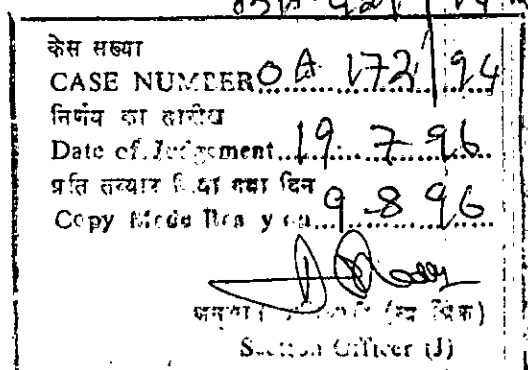 केस सख्या
CASE NUMBER O A 172/94
निर्णय का तारीख
Date of Judgement 19. 7 - 96
प्रति तय्यार किया गया दिन
Copy Made Ready on 9 - 8 96
Section Officer (J)